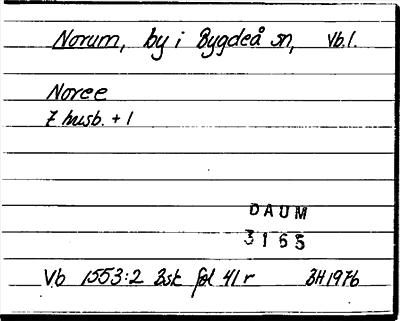 Norum, by i Bygdeå sn, Vb.l.
Noree
7 husb. + 1
DAUM
3165
Vb 1553:2 Bsk fol 41 r BH 1976